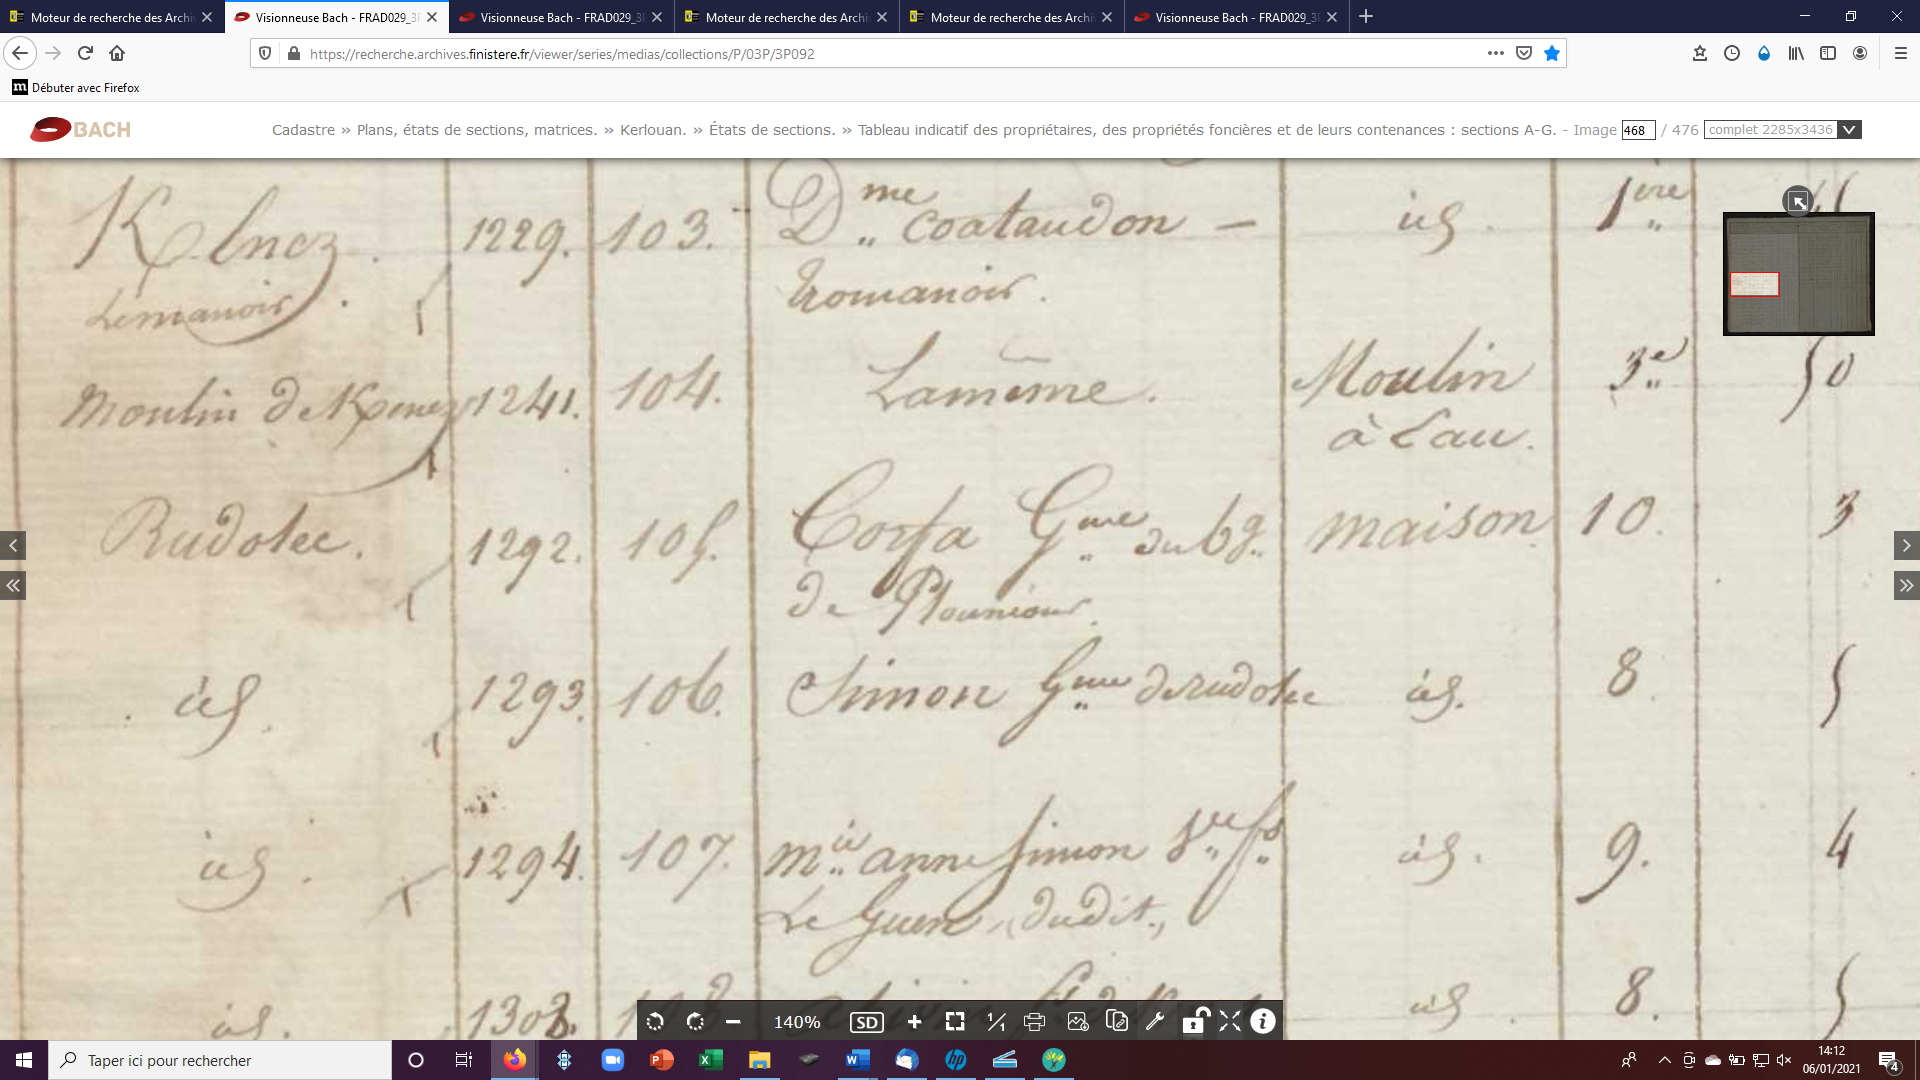 Moteur de recherche des Archiv
Visionneuse Bach - FRAD029_3P
Visionneuse Bach - FRAD029_3P
Moteur de recherche des Archiv
Moteur de recherche des Archiv
Visionneuse Bach - FRAD029_3P
https://recherche.archives.finistere.fr/viewer/series/medias/collections/P/03P/3P092
Débuter avec Firefox
BACH
Cadastre » Plans, états de sections, matrices. » Kerlouan. » États de sections. » Tableau indicatif des propriétaires, des propriétés foncières et de leurs contenances : sections A-G. - Image 468 / 476 complet 2285x3436
1229. 103. Dme Coataudon - id. 1ère
Lemanoir. tromanoir.
Moulin de 1241. 104. Lamême. Moulin 3e 50
à Eau.
Rudolec. 1292. 105. Corfa Gme du bg. maison 10. 3
de Plouneour.
id. 1293. 106. Simon Gme de rudolec id. 8. 5
id. 1294. 107. mie anne Simon Vve id. 9. 4
Le Guen, dudit,
id. 1303. 108 id. 8. 5
140%
SD
1/1
Taper ici pour rechercher
14:12
06/01/2021
4